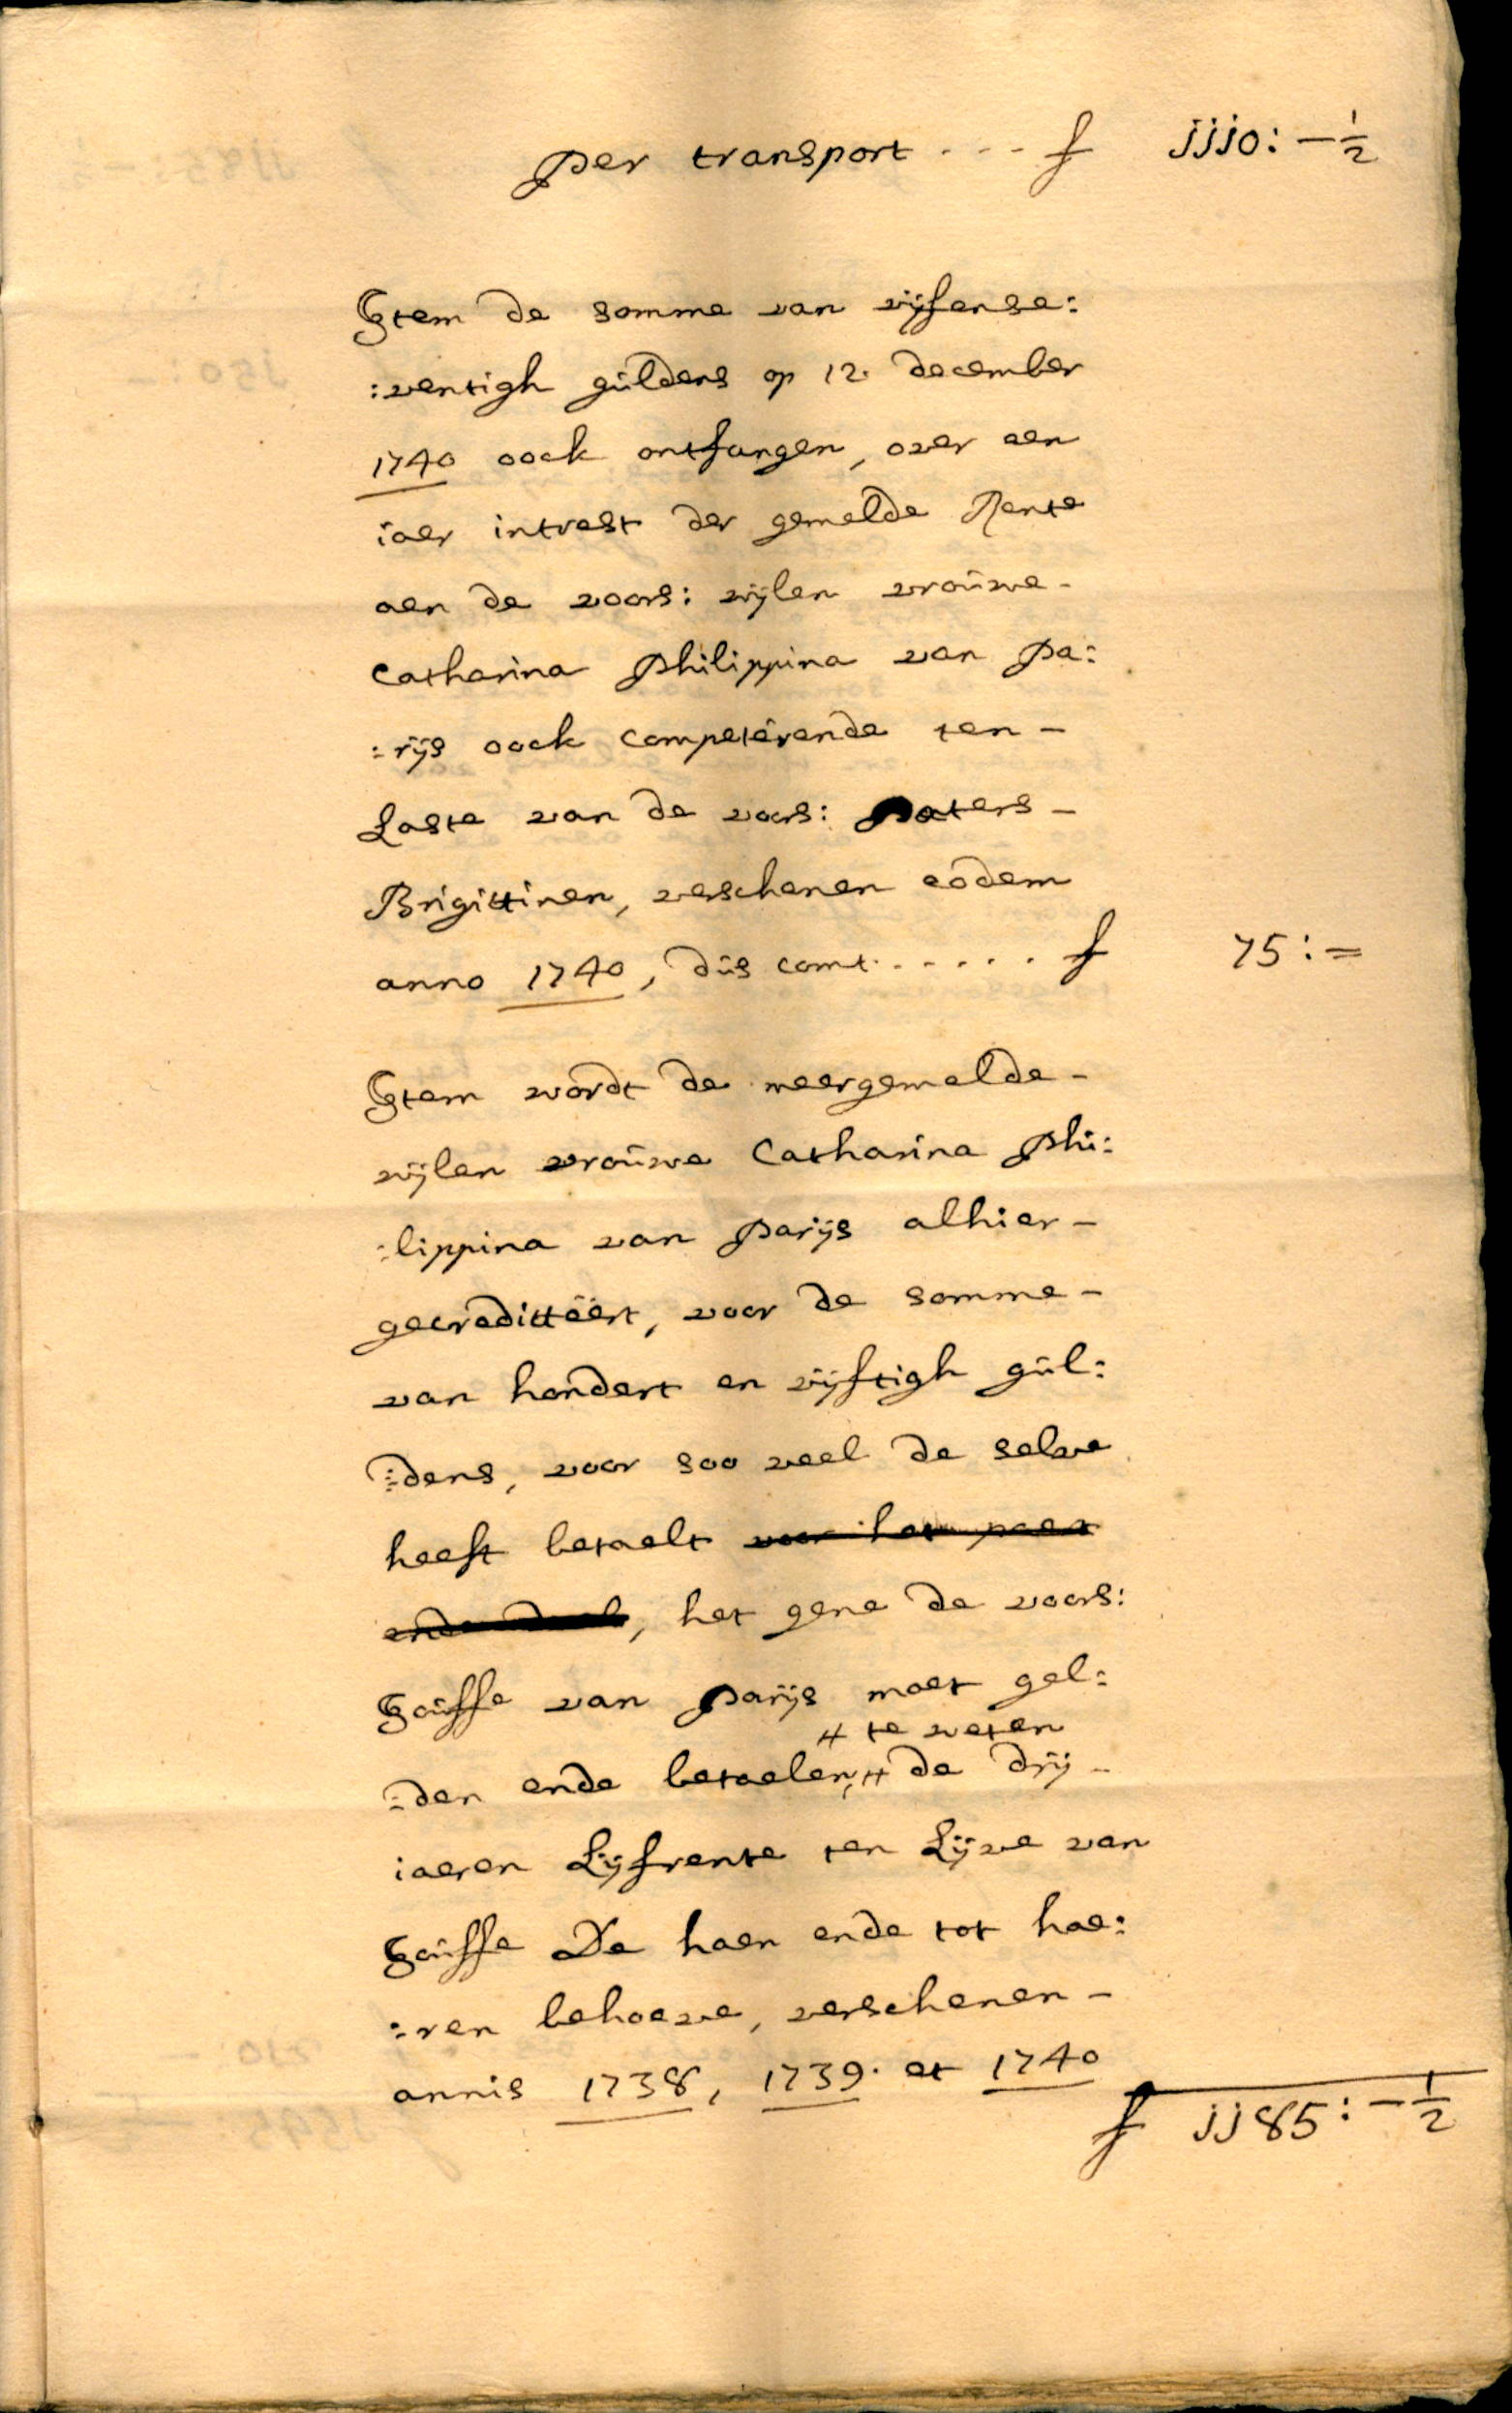 Per transport . - - f jjj0: - ½
Item de somme van vijfense:
:ventigh guldens op 12. december
1740 oock ontfangen, over een
iaer intrest der gemelde Rente
aen de voors: wijlen vrouwe -
Catharina Philippina van Pa:
:rijs oock competerende ten -
Laste van de voors: Paters -
Brigittinen, verschenen eodem
anno 1740, dus comt . - - - - . f 75: =
Item wordt de meergemelde -
wijlen vrouwe Catharina Phi:
:lippina van Parijs alhier -
gecreditteert, voor de somme -
van hondert en vijftigh gul:
:dens, voor soo veel de selve
heeft betaelt voor het paert
ende deel, het gene de voors:
Jouffe van Parijs moet gel:
# te weten
:den ende betaelen, # de drij -
iaeren Lijfrente ten Lijve van
Jouffe De haen ende tot hae:
:ren behoeve, verschenen -
annis 1738, 1739. et 1740
f jj85: - ½